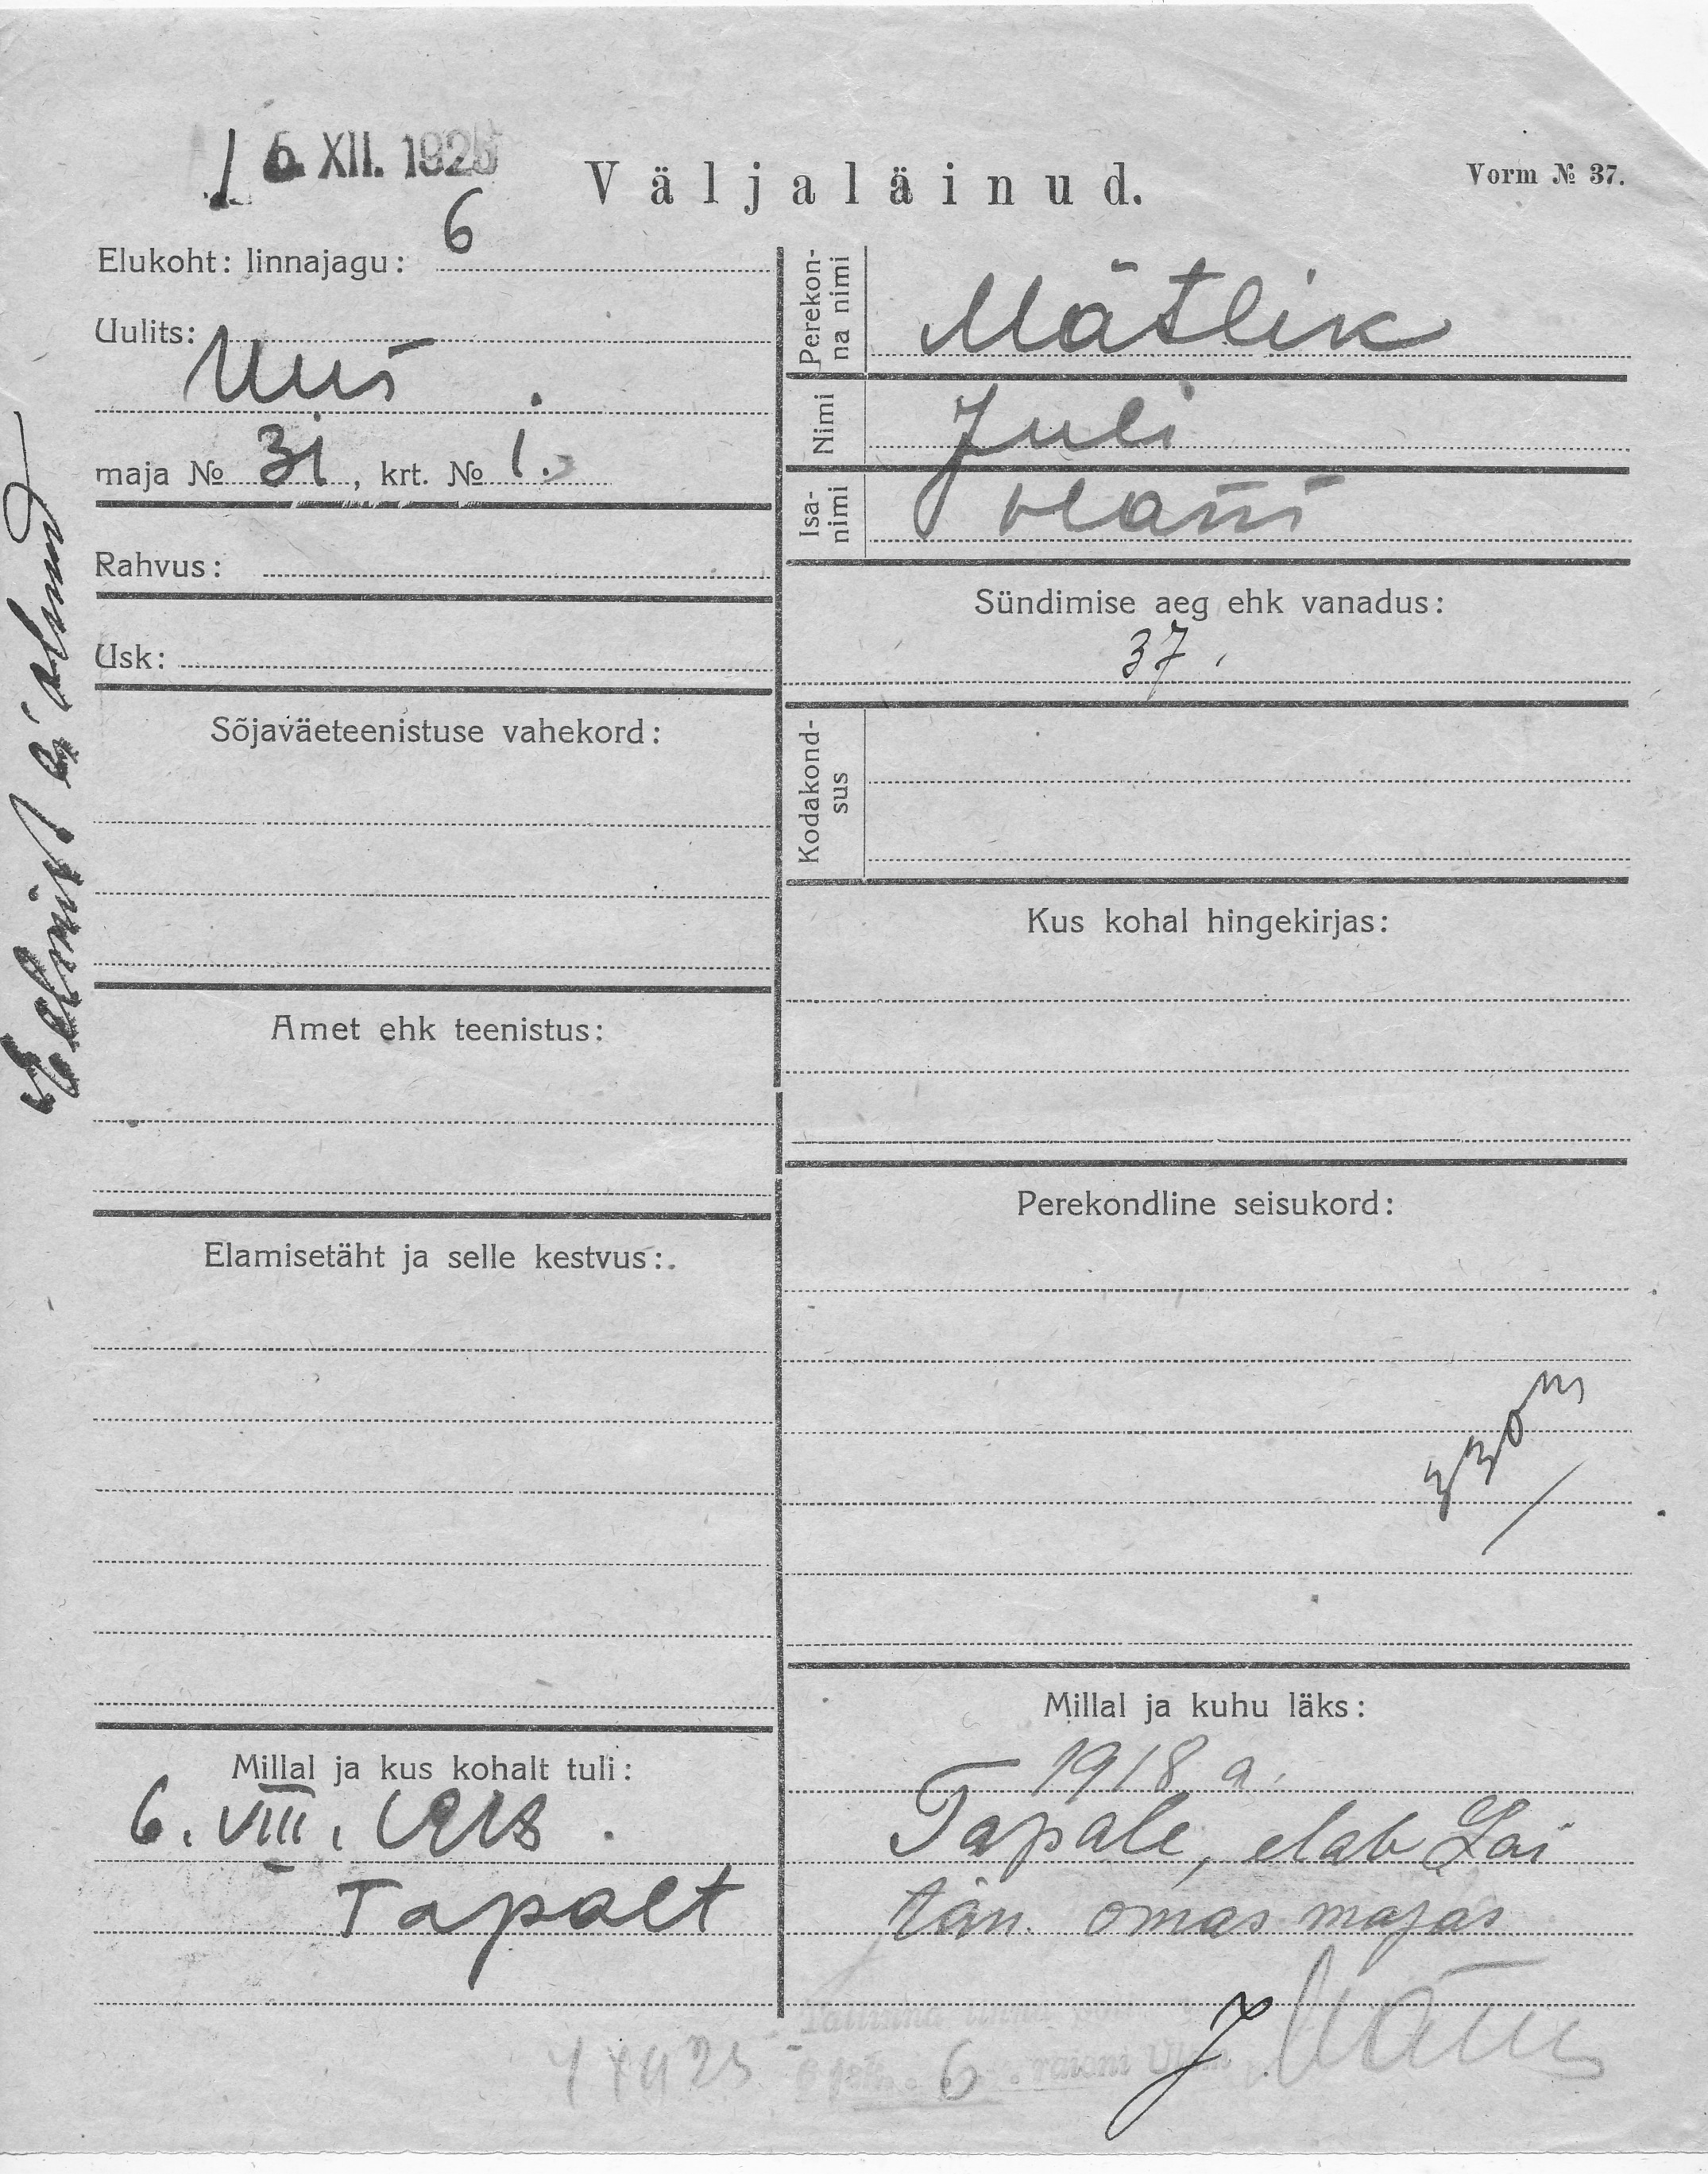 16. XII. 1925
Väljaläinud.
Vorm № 37.
Elukoht: linnajagu: 6
Uulits:
Uus
maja № 31, krt. № 1.
Rahvus:
Usk:
Sõjaväeteenistuse vahekord:
Amet ehk teenistus:
Elamisetäht ja selle kestvus:
Millal ja kus kohalt tuli:
6. VIII.
Tapalt
Perekonna nimi
Mätlik
Nimi
Juli
Isanimi
Kodakondsus
Sündimise aeg ehk vanadus:
37.
Kus kohal hingekirjas:
Perekondline seisukord:
Millal ja kuhu läks:
1918 a.
Tapale, elab Lai
tän. omas majas
6 raioni